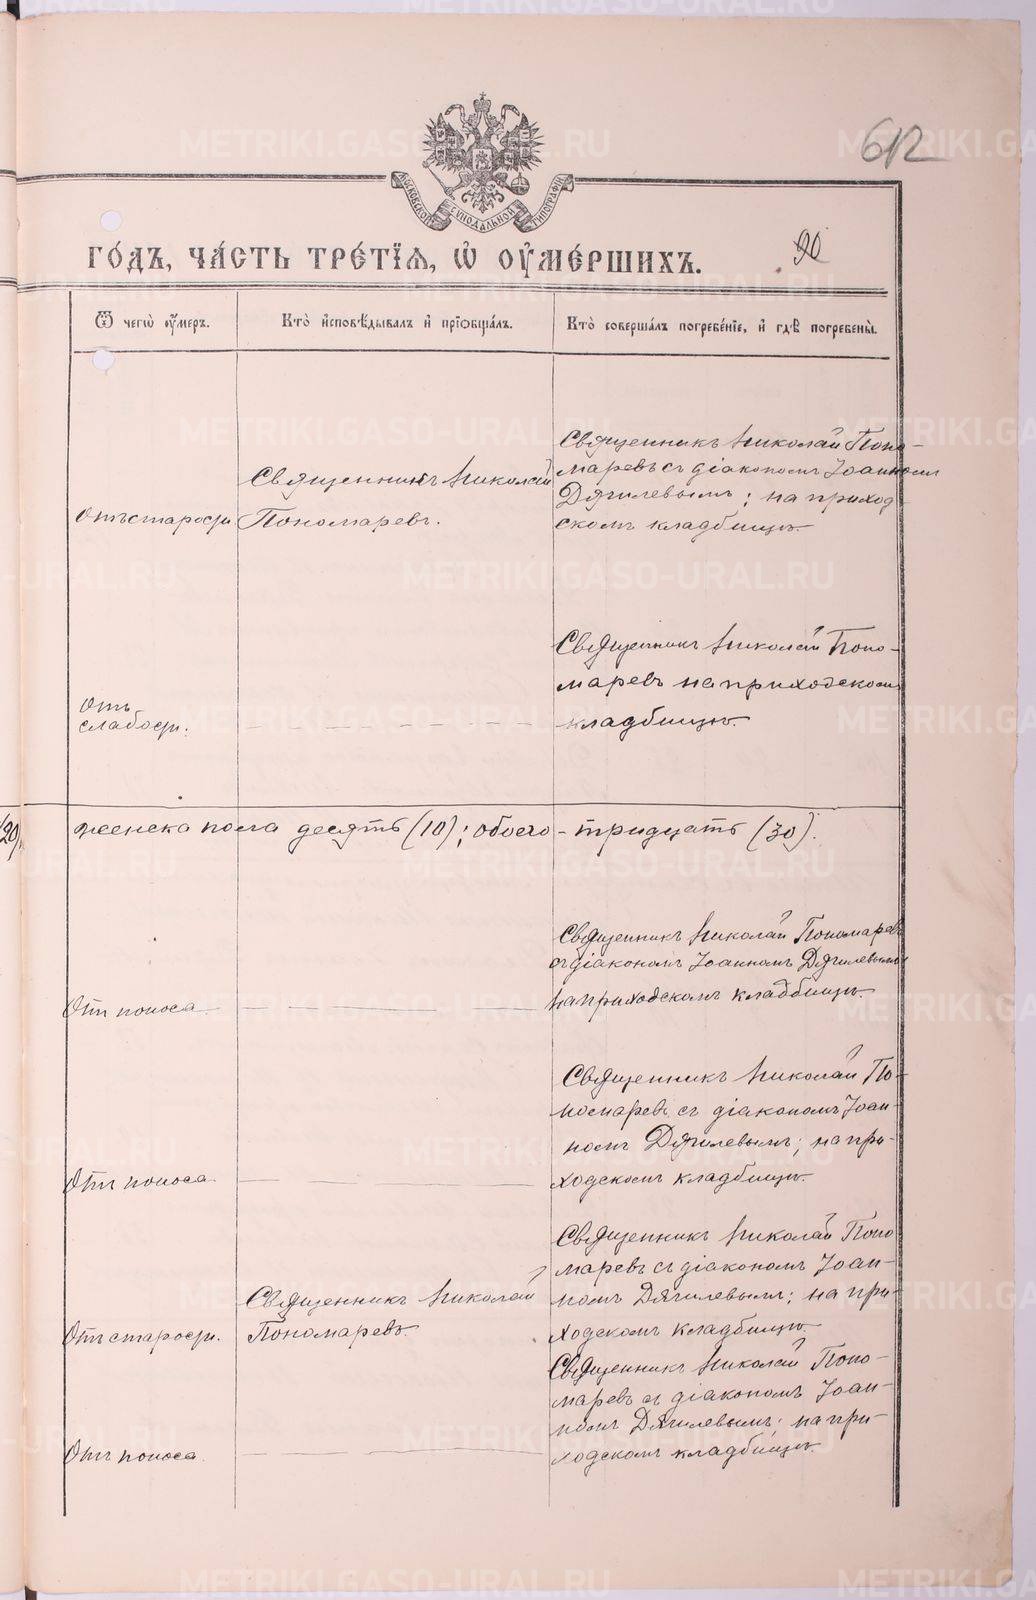 612
МОСКОВСКОЙ СѴНОДАЛЬНОЙ ТИПОГРАФІИ
ГО́ДЪ, ЧА́СТЬ ТРЕ́ТІЯ, Ѡ҆ ОУ҆МЕ́РШИХЪ.
90
Ѿ чегѡ̀ оу҆́мер.
Кто̀ и҆сповѣ́дывалъ и҆ прїѻбща́лъ.
Кто̀ соверша́лъ погребе́нїе, и҆ гдѣ̀ погребены̀.
Отъ старости
Священникъ Николай
Пономаревъ.
Священникъ Николай Поно-
маревъ съ діакономъ Іоанномъ
Дягилевымъ; на приход
скомъ кладбищѣ.
Отъ
слабости.
Священникъ Николай Поно-
маревъ на приходскомъ
кладбищѣ.
20)
женска пола десять (10); обоего - тридцать (30).
Отъ поноса
Священникъ Николай Пономаревъ
съ діакономъ Іоанномъ Дягилевымъ
на приходскомъ кладбищѣ.
Отъ поноса.
Священникъ Николай По-
номаревъ съ діакономъ Іоан-
номъ Дягилевымъ; на при-
ходскомъ кладбищѣ.
Отъ старости.
Священникъ Николай
Пономаревъ.
Священникъ Николай Поно
маревъ съ діакономъ Іоан-
номъ Дягилевымъ; на при-
ходскомъ кладбищѣ.
Отъ поноса.
Священникъ Николай Поно-
маревъ съ діакономъ Іоан-
номъ Дягилевымъ; на при-
ходскомъ кладбищѣ.
METRIKI.GASO-URAL.RU